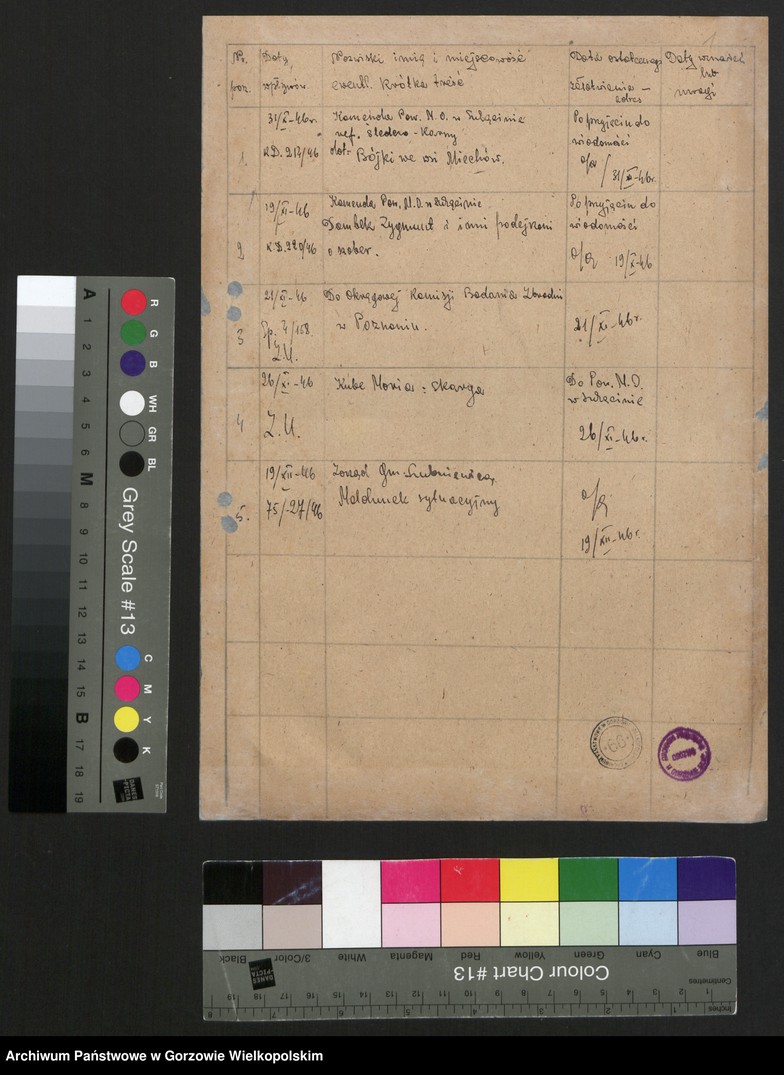 1
Nr. poz.
Daty wpływów.
Nazwiski imię i miejscowość
ewentl. krótka treść
Data ostatecznego
załatwienia —
adres
Daty wznawień
lub
uwagi
1.
31/X-46r.
K.D. 212/46
Komenda Pow. M.O. w Sulęcinie
ref. Śledczo-Karny
dot. Bójki we wsi Miechów.
Po przyjęciu do
wiadomości
a/a
31/X-46r.
2
19/XI-46
K.D. 220/46
Komenda Pow. M.O. w Sulęcinie.
Dombek Zygmunt i inni podejrzani
o szaber.
Po przyjęciu do
wiadomości
a/a 19/X-46
3
21/XI-46
Sp. 4/158
Z.U.
Do Okręgowej Komisji Badania Zbrodni
w Poznaniu.
21/XI-46r.
4
26/XI-46
Z.U.
Kube Maria: skarga
Do Pow. M.O.
w Sulęcinie
26/XI-46r.
5.
19/XII-46
75/-27/46
Zarząd Gm.
Meldunek sytuacyjny
a/a
19/XII-46r.
66
A 1 2 3 4 5 6 M 8 9 10 11 12 13 14 15 B 17 18 19
R G B WH GR BL
Grey Scale #13
C M Y K
DANES
PICTA
Blue Cyan Green Yellow Red Magenta White 3/Color Black
Colour Chart #13
DANES
PICTA
Centimetres
1 2 3 4 5 6 7 8 9 10 11 12 13 14 15 16 17 18 19
Inches
1 2 3 4 5 6 7 8
Archiwum Państwowe w Gorzowie Wielkopolskim